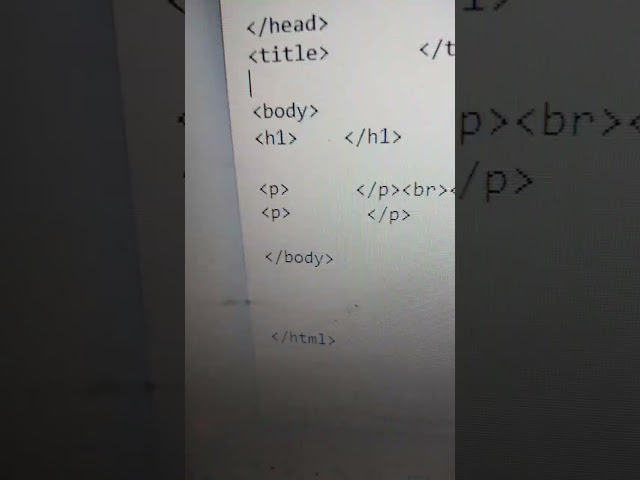 </head>
<title> </t
<body>
<h1> </h1>
<p> </p><br><
<p> </p>
</body>
</html>